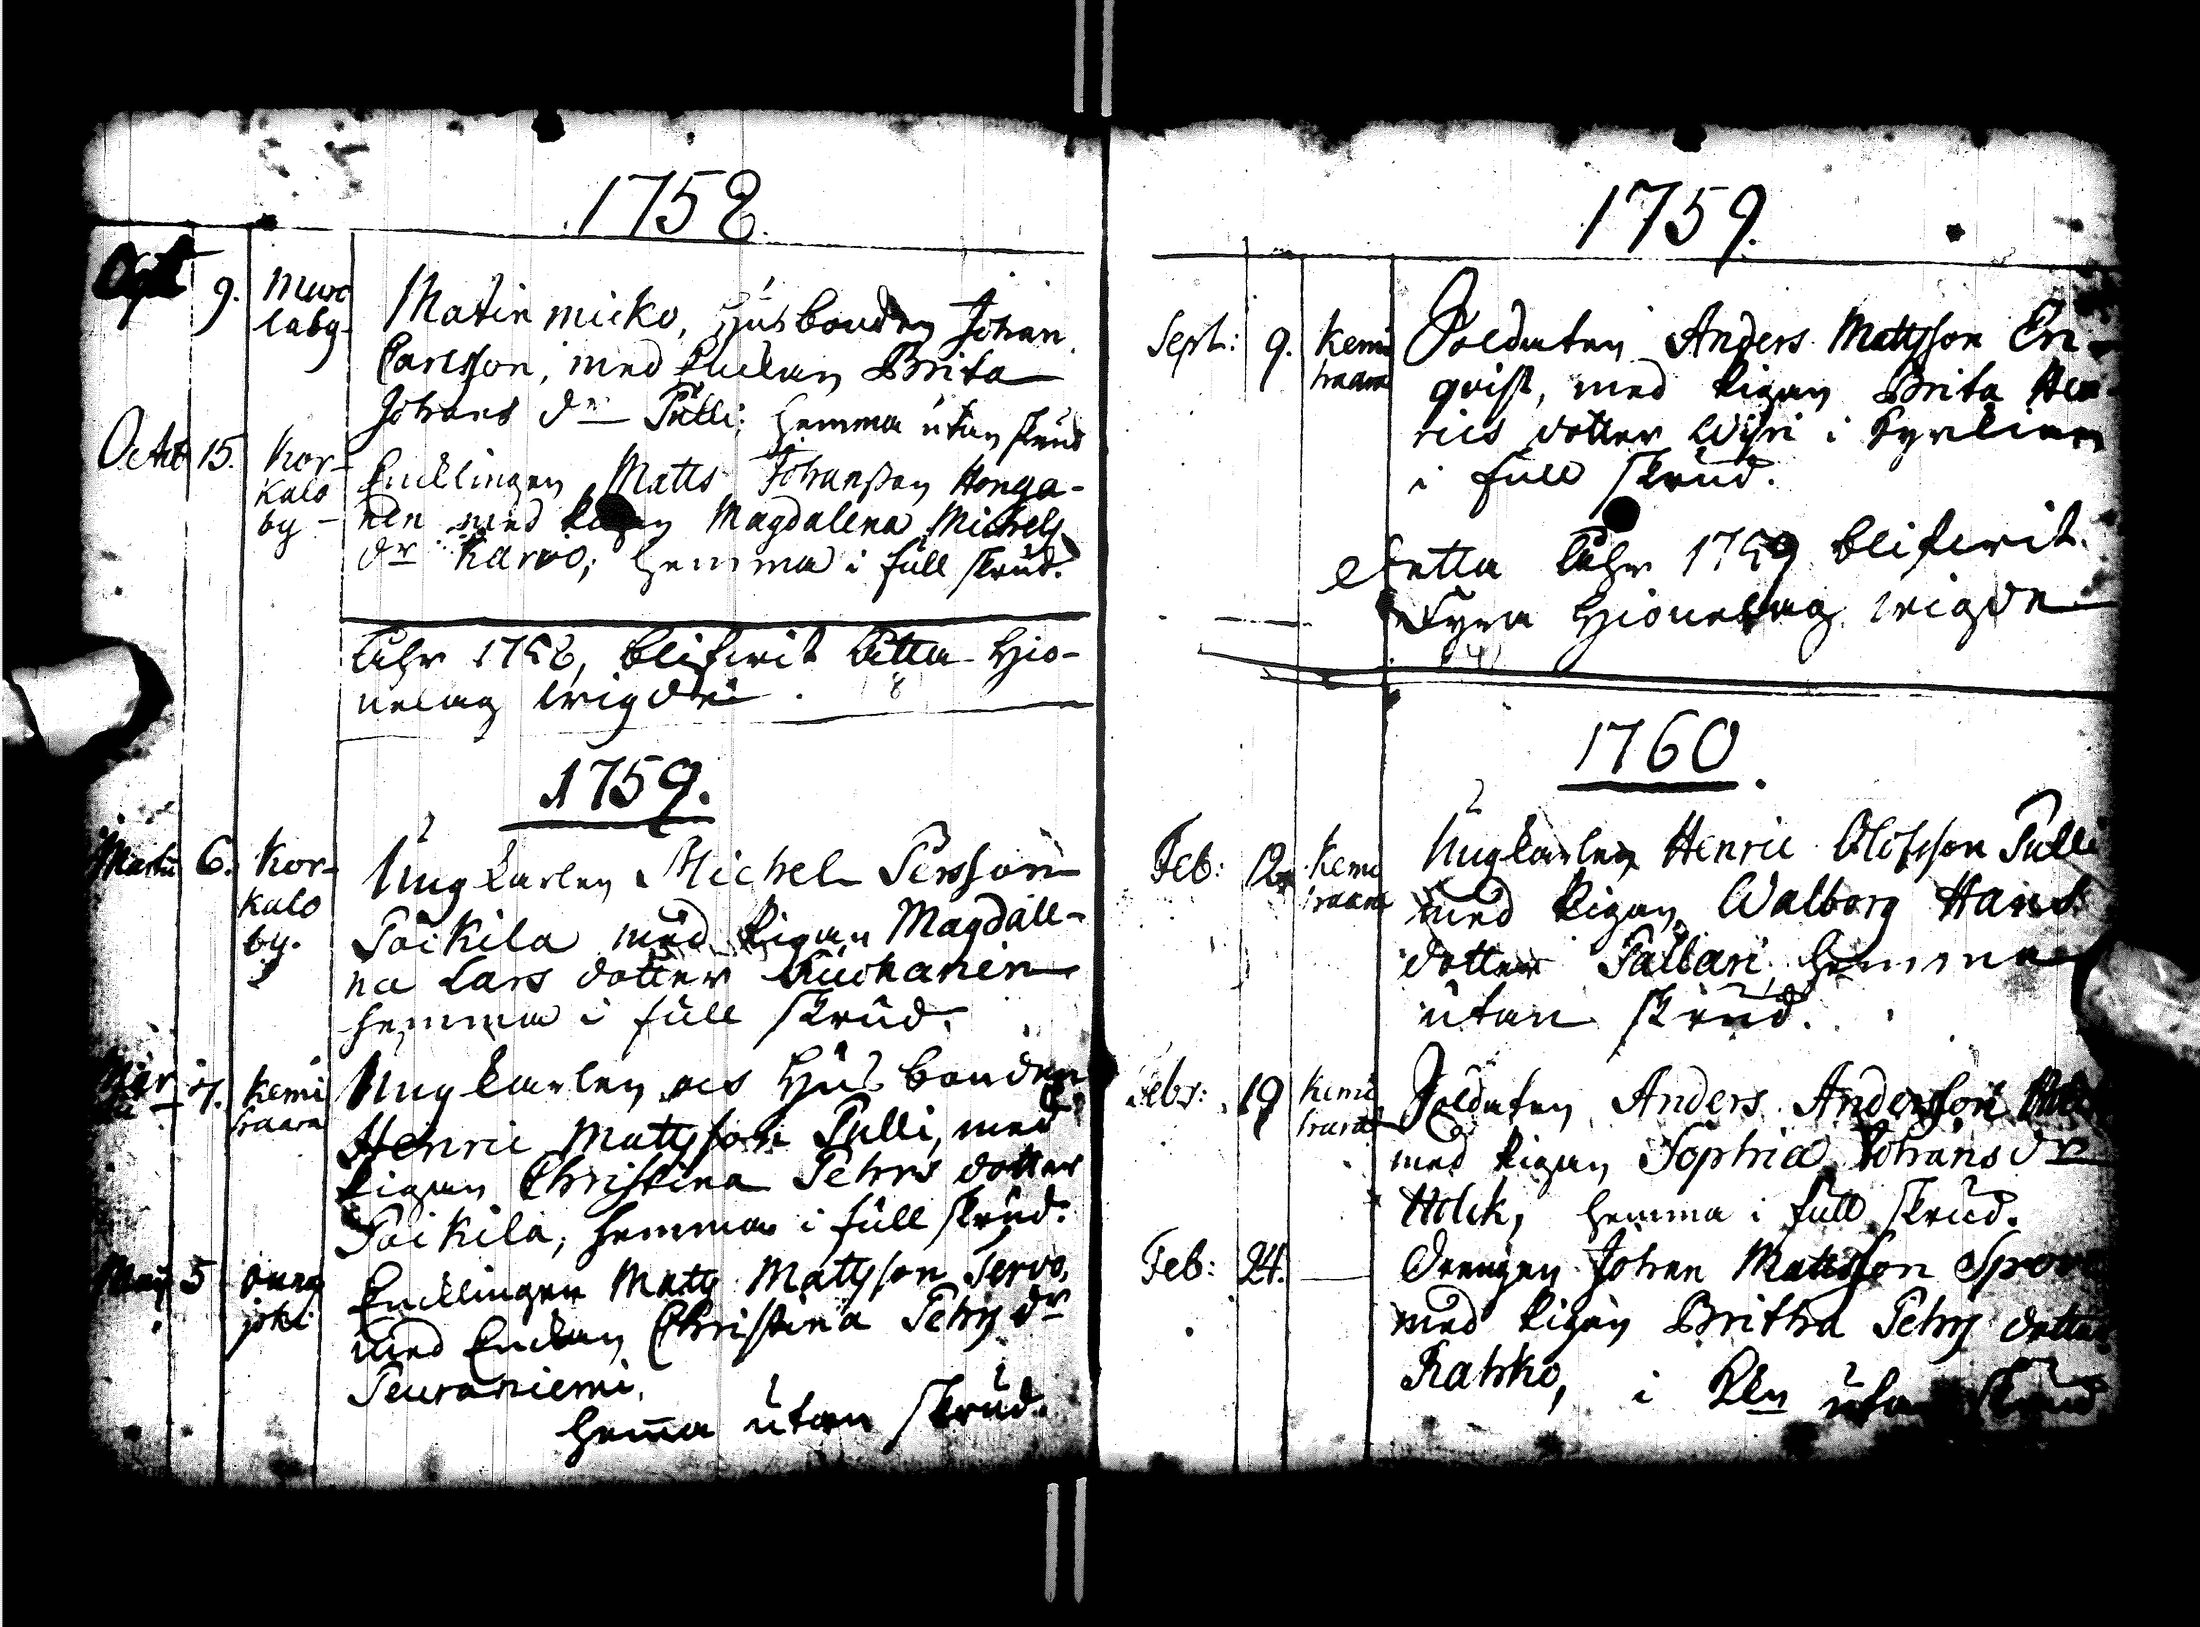 1758.
Oct 9. Muro
laby.
Matin micko, Husbonden Johan
Carlsson, med Enckan Brita
Johans dr Pulli; hemma utan skrud
Octob 15. Kor-
kalo
by -
Encklingen Matts Johansson Honga-
nen med Pigan Magdalena Michels
dr Karvo; hemma i full skrud.
Åhr 1758, blifwit Åtta Hio-
nelag wigde. 8
1759.
Martii 6. Kor-
kalo
by.
Ungkarlen Michel Persson
Poikila med Pigan Magdale-
na Lars dotter
hemma i full skrud.
7. Kemi
traara
Ungkarlen och Husbonden
Henric Mattsson Pulli, med
Pigan Christina Pehrs dotter
Poikila, hemma i full skrud.
Maij 5 Ounas
joki
Encklingen Matts Mattsson Servo,
med Enckan Christina Pehrs dr
Peuraniemi,
hemma utan skrud.
1759.
Sept: 9. Kemi
traara
Soldaten Anders Mattsson En-
qvist, med Pigan Brita Hen-
rics dotter Wisri i Kyrckian
i full skrud.
Detta Åhr 1759 blifwit
Fyra Hionelag wigde
1760.
Feb: 12. Kemi
traara
Ungkarlen Henric Olofsson Pulli
med Pigan Walborg Hans
dotter Pallari hemma
utan skrud.
Febr: 19 Kemi
traara
Soldaten Anders Andersson
med Pigan Sophia Johans dr
Holck, hemma i full skrud.
Feb: 24. —
Drengen Johan Mattsson
med Pigan Britha Pehrs dotter
Ratsko, i Kkn utan skrud